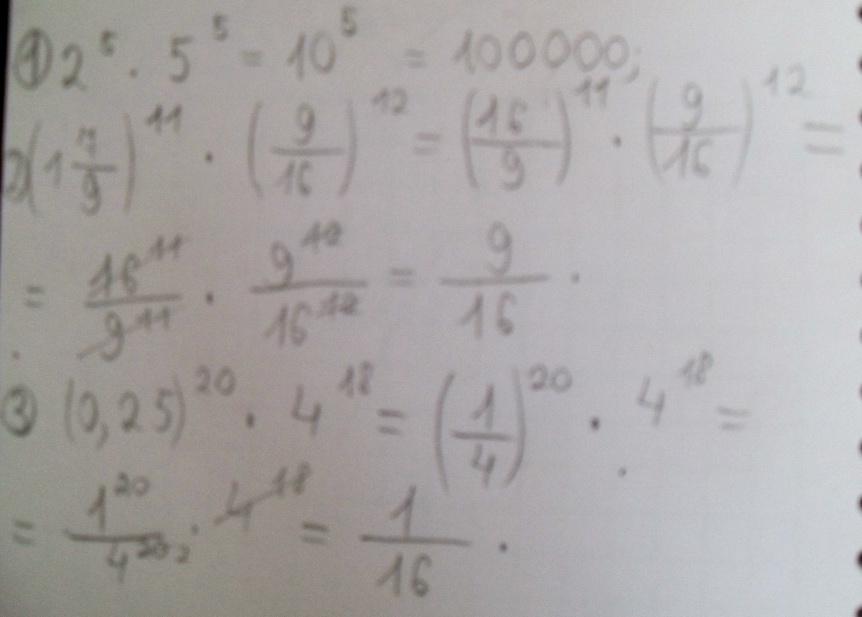 ① 2⁵ · 5⁵ = 10⁵ = 100000;
2) (1 7/9)¹¹ · (9/16)¹² = (16/9)¹¹ · (9/16)¹² =
= 16¹¹/9¹¹ · 9¹²/16¹² = 9/16 .
③ (0,25)²⁰ · 4¹⁸ = (1/4)²⁰ · 4¹⁸ =
= 1²⁰/4²⁰ ² · 4¹⁸ = 1/16 .